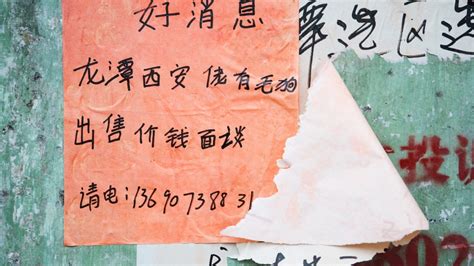 好消息
龙潭西安佬有毛狗
出售价钱面谈
请电:13690738831
区选
投